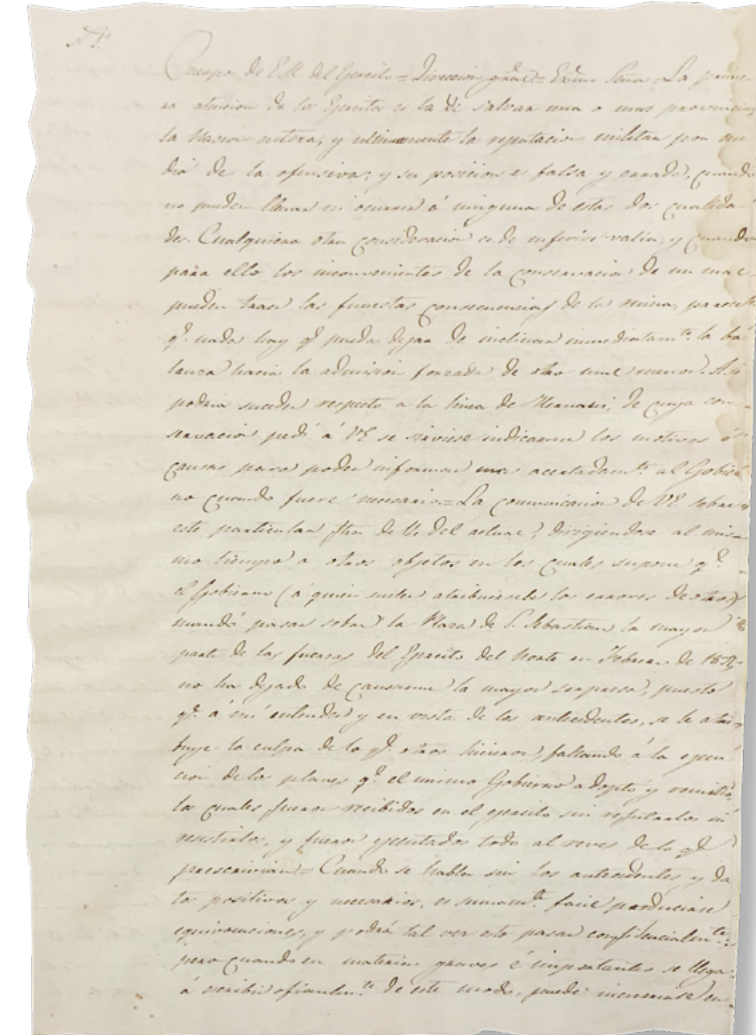 Nº 1º
Cuerpo de E.M. del Ejercito = Direccion gral = Exmo Señor = La prime-
ra atencion de los Ejercitos es la de salvar una o mas provincias,
la Nacion entera, y ultimamente la reputacion militar por me-
dio de la ofensiva; y su posicion es falsa y errada, cuando
no pueden llenar ni ocurrir á ninguna de estas dos cualida-
des. Cualquiera otra consideracion es de inferior valia; y cuando
para ello los inconvenientes de la conservacion de un mal
pueden traer las funestas consecuencias de la ruina, parece
q.e nada hay q.e pueda dejar de inclinar inmediatam.te la ba-
lanza hacia la admision forzada de otro mal menor. Asi
podria suceder respecto a la linea de Hernani, de cuya con-
servacion pedi á VE se sirviese indicarme los motivos ó
causas para poder informar mas acertadam.te al Gobier-
no cuando fuere necesario = La comunicacion de VE sobre
este particular fha de 11 del actual, dirigiendose al mis-
mo tiempo a otros objetos en los cuales supone q.e
el Gobierno (á quien suelen atribuirsele los errores de otros)
mandó pasar sobre la Plaza de S. Sebastian la mayor
parte de las fuerzas del Ejercito del Norte en Febrero de 1837,
no ha dejado de causarme la mayor sorpresa, puesto
q.e á mi entender y en vista de los antecedentes, se le atri-
buye la culpa de lo q.e otros hicieron, faltando á la ejecu-
cion de los planes q.e el mismo Gobierno adoptó y remitió,
los cuales fueron recibidos en el ejercito sin refutarlos ni
resistirlos, y fueron ejecutados todo al reves de lo q.e
prescrivian = Cuando se habla sin los antecedentes y da-
tos positivos y necesarios, es sumam.te facil producirse
equivocaciones, y podrá tal vez esto pasar confidencialm.te;
pero cuando en materias graves é importantes se llega
á escribir oficialm.te de este modo, puede incurrirse en